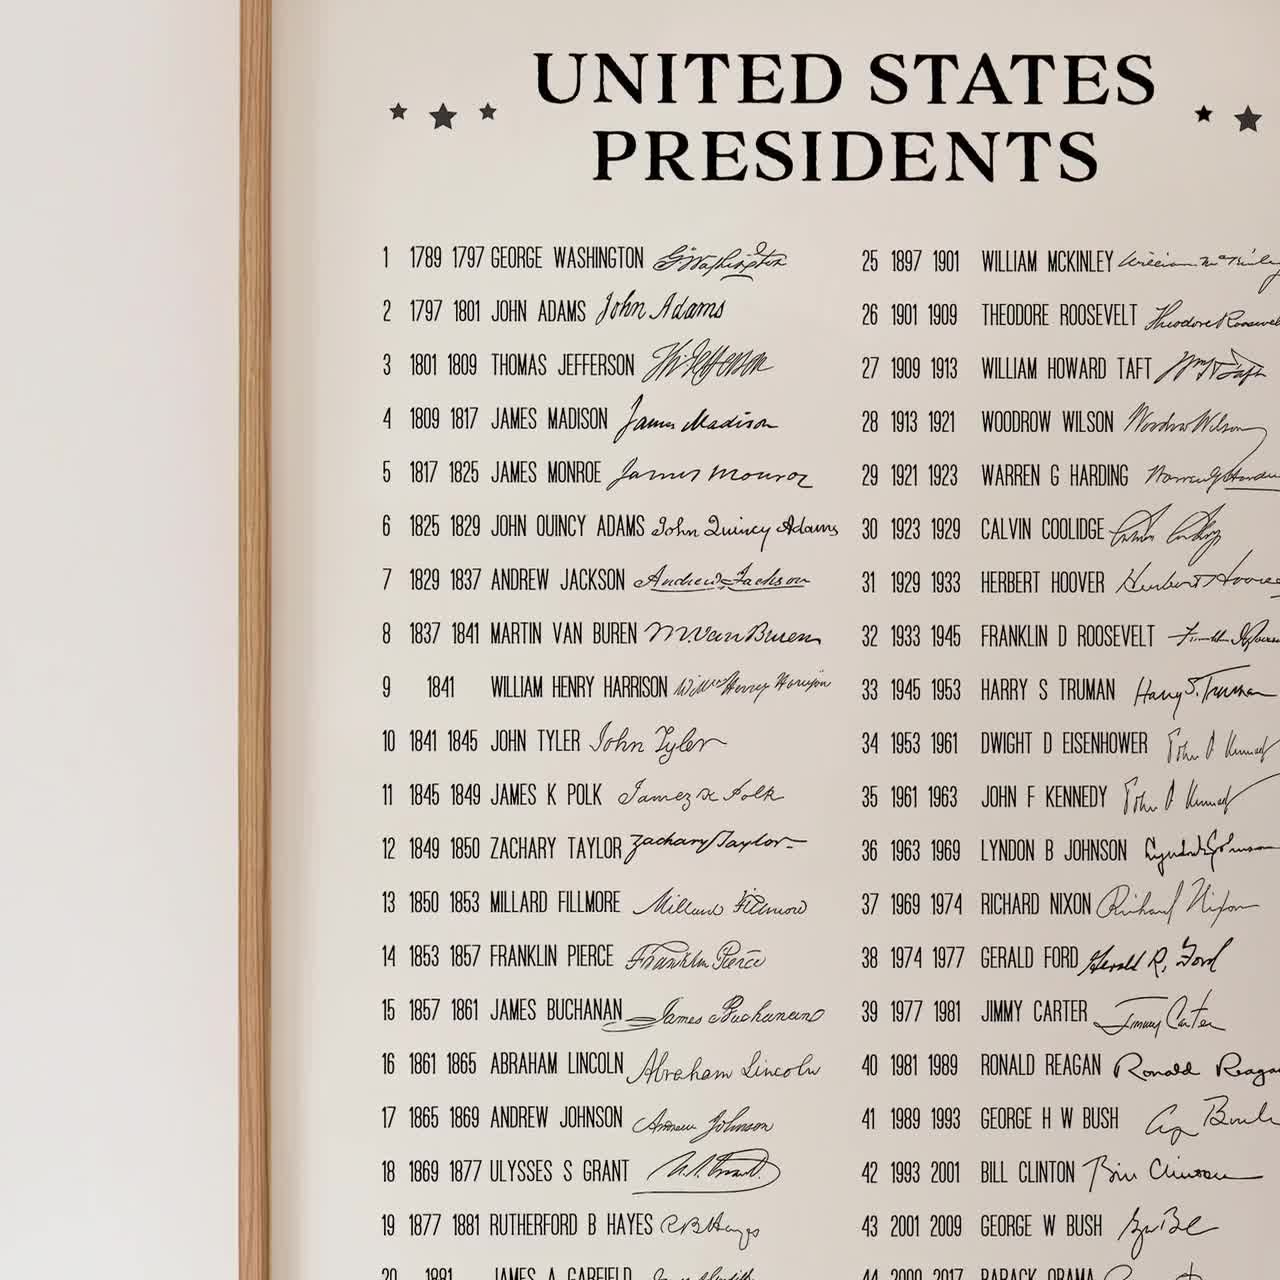 UNITED STATES
PRESIDENTS
1 1789 1797 GEORGE WASHINGTON G Washington
2 1797 1801 JOHN ADAMS John Adams
3 1801 1809 THOMAS JEFFERSON Th Jefferson
4 1809 1817 JAMES MADISON James Madison
5 1817 1825 JAMES MONROE James Monroe
6 1825 1829 JOHN QUINCY ADAMS John Quincy Adams
7 1829 1837 ANDREW JACKSON Andrew Jackson
8 1837 1841 MARTIN VAN BUREN M. Van Buren
9 1841 WILLIAM HENRY HARRISON Henry Harrison
10 1841 1845 JOHN TYLER John Tyler
11 1845 1849 JAMES K POLK James K Polk
12 1849 1850 ZACHARY TAYLOR Zachary Taylor
13 1850 1853 MILLARD FILLMORE Millard Fillmore
14 1853 1857 FRANKLIN PIERCE Franklin Pierce
15 1857 1861 JAMES BUCHANAN James Buchanan
16 1861 1865 ABRAHAM LINCOLN Abraham Lincoln
17 1865 1869 ANDREW JOHNSON Andrew Johnson
18 1869 1877 ULYSSES S GRANT U.S. Grant
19 1877 1881 RUTHERFORD B HAYES R B Hayes
20 1881 JAMES A GARFIELD
25 1897 1901 WILLIAM MCKINLEY William McKinley
26 1901 1909 THEODORE ROOSEVELT Theodore Roosevel
27 1909 1913 WILLIAM HOWARD TAFT Wm H Taft
28 1913 1921 WOODROW WILSON Woodrow Wilson
29 1921 1923 WARREN G HARDING Warren G Hardin
30 1923 1929 CALVIN COOLIDGE Calvin Coolidge
31 1929 1933 HERBERT HOOVER Herbert Hoove
32 1933 1945 FRANKLIN D ROOSEVELT
33 1945 1953 HARRY S TRUMAN Harry S. Truman
34 1953 1961 DWIGHT D EISENHOWER John F Kennedy
35 1961 1963 JOHN F KENNEDY John F Kennedy
36 1963 1969 LYNDON B JOHNSON Lyndon B Johnson
37 1969 1974 RICHARD NIXON Richard Nixon
38 1974 1977 GERALD FORD Gerald R. Ford
39 1977 1981 JIMMY CARTER Jimmy Carter
40 1981 1989 RONALD REAGAN Ronald Reaga
41 1989 1993 GEORGE H W BUSH
42 1993 2001 BILL CLINTON Bill Clinton
43 2001 2009 GEORGE W BUSH
44 2009 2017 BARACK OBAMA